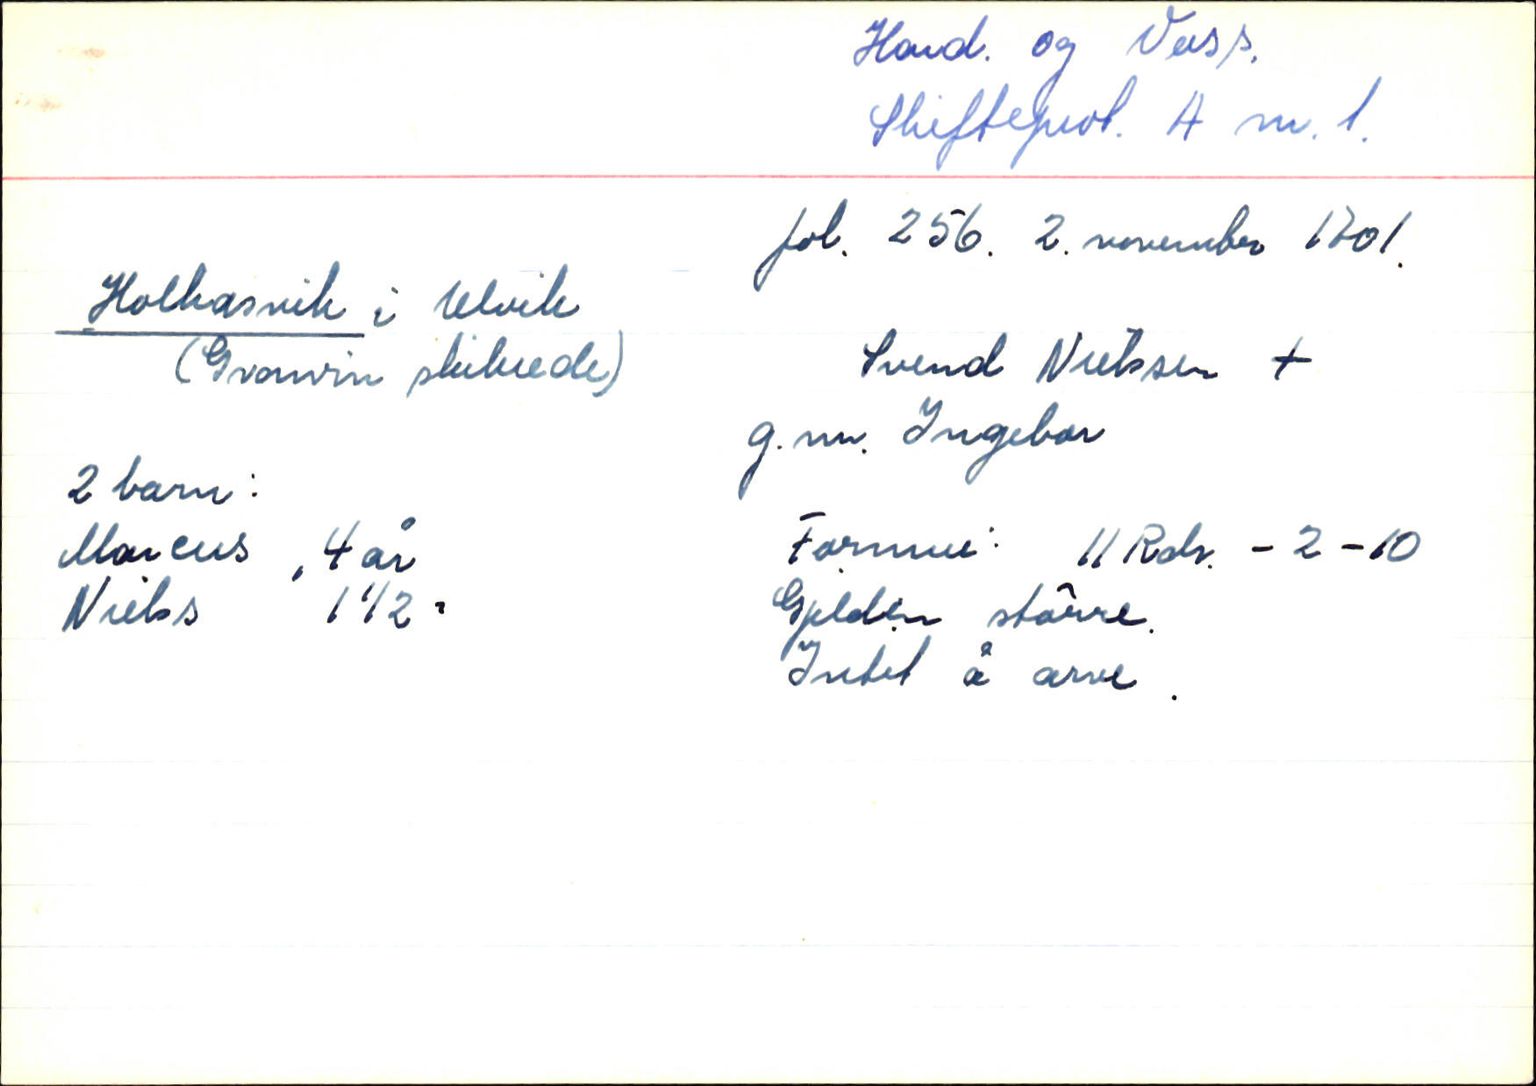 Hard. og Voss.
Skifteprot. A nr. 1.
fol. 256. 2. november 1701.
Holkasvik i Ulvik
(Gravin skibrede)
Svend Nielssen +
g.m. Ingebor
2 barn:
Marcus, 4 år
Niels 1 1/2 "
Formue: 11 Rdr. - 2 - 10
Gjelden større.
Intet å arve.